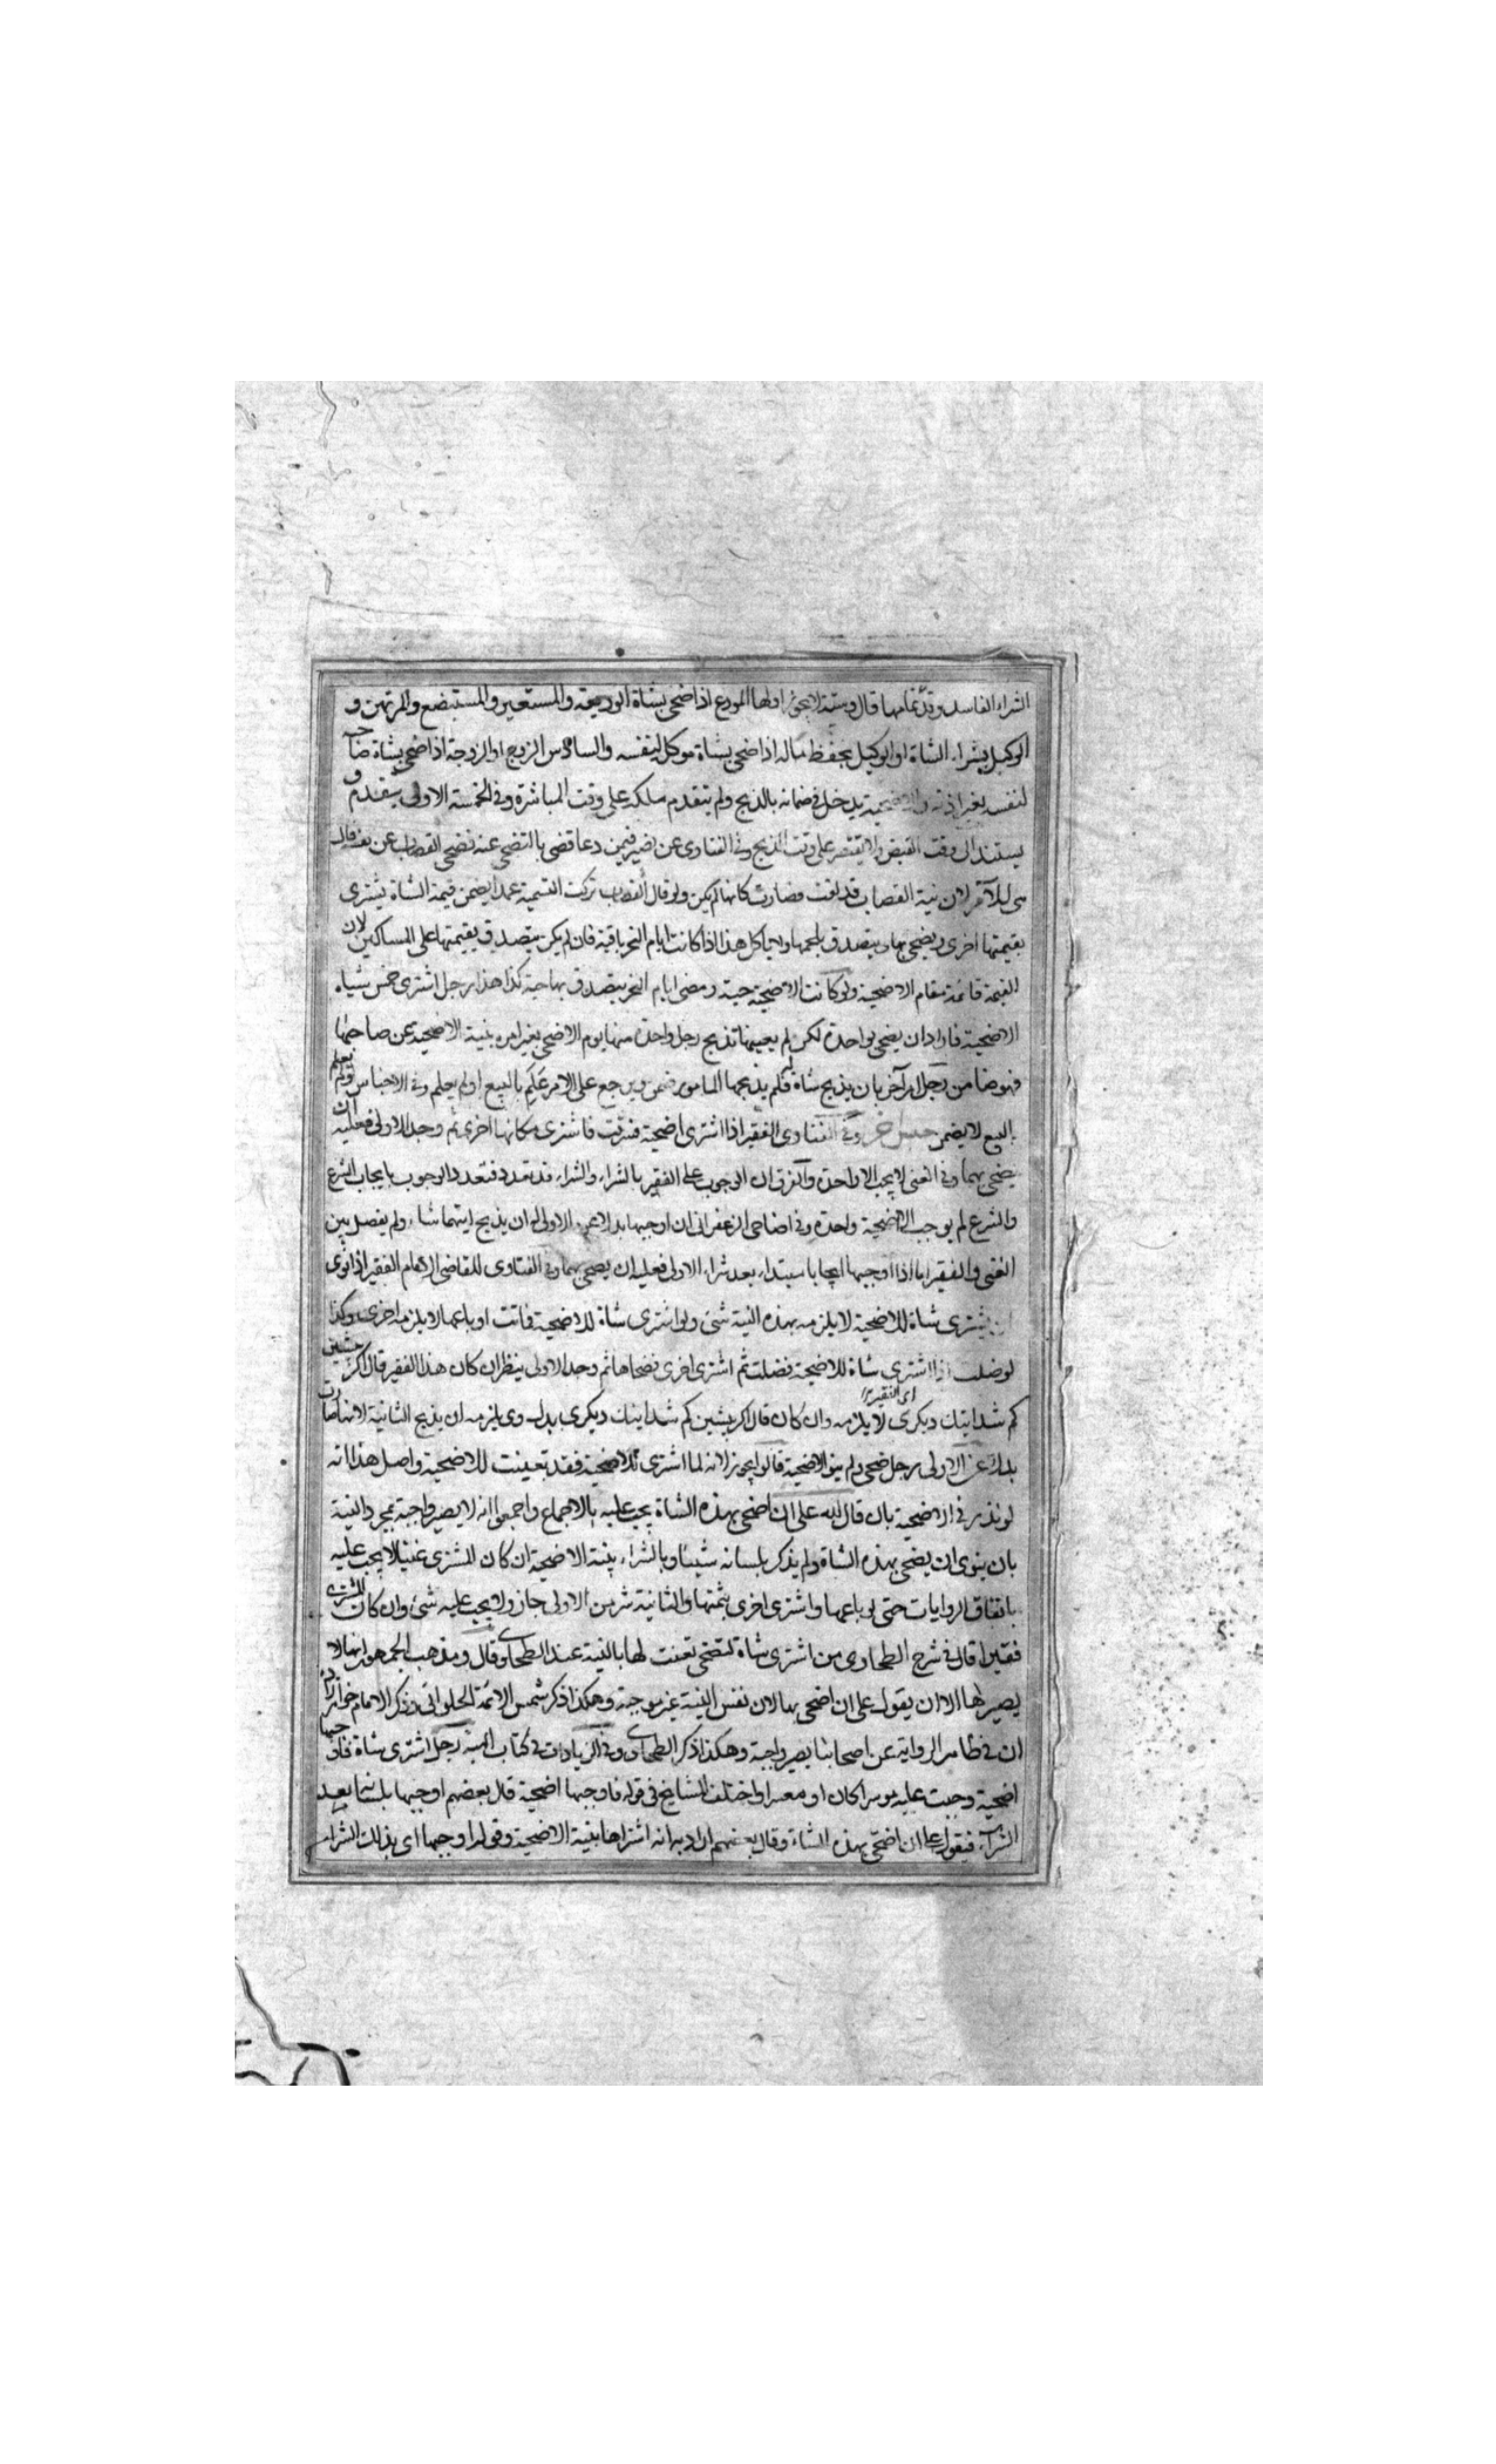 الشراء الفاسد وقد تمامها قال وستة لا يجوز اولها المودع اذا ضحى بشاة الوديعة والمستعير والمستبضع والمرتهن و
الوكيل بشراء الشاة او الوكيل بحفظ ماله اذا ضحى بشاة موكله لنفسه والسادس الزوج او الزوجة اذا ضحى بشاة صاحبه
لنفسه بغير اذنه يدخل في ضمانه بالذبح ولم يتقدم ملكه على وقت المباشرة وفي الخمسة الاولى يتقدم و
يستند الى وقت القبض ولا يقتصر على وقت الذبح وفي الفتاوى عن نصير فيمن دعا قصابا لتضحي عنه فضحى القصاب عن نفسه قال
هي للآمر لان نية القصاب قد لغت فصارت كانها لم يكن ولو قال القصاب تركت التسمية عمدا يضمن قيمة الشاة يشتري
بقيمتها اخرى ويضحى بها ويتصدق بلحمها ولا ياكل هذا اذا كانت ايام النحر باقية فان لم يكن يتصدق بقيمتها على المساكين لان
القيمة قائمة مقام الاضحية ولو كانت الاضحية حية ومضى ايام النحر يتصدق بها حية كذا هذا رجل اشترى خمس شياه
الاضحية فاراد ان يضحى بواحدة لكن لم يعينها فذبح رجل واحدة منها يوم الاضحى بغير امره بنية الاضحية عن صاحبها
فهو ضامن رجل امر آخر بان يذبح شاة فلم يذبحها المامور ضمن ويرجع على الامر علم بالبيع او لم يعلم وفي الاجناس ولو لم يعلم
البيع لا يضمن وفي الفتاوى الفقير اذا اشترى اضحية فسرقت فاشترى مكانها اخرى ثم وجد الاولى فعليه ان
يضحى بهما وفي الغنى لا يجب الا واحدة والفرق ان الوجوب على الفقير بالشراء والشراء قد تعدد فتعدد الوجوب بايجاب الشرع
والشرع لم يوجب الاضحية واحدة وفي اضاحى الزعفرانى ان اوجبها بدلا عن الاولى له ان يذبح ايتهما شاء ولم يفصل بين
الغنى والفقير اما اذا اوجبها ايجابا مبتداء بعد شراء الاولى فعليه ان يضحى بهما وفي الفتاوى للقاضى الامام الفقير اذا نوى
ان يشترى شاة للاضحية لا يلزمه بهذه النية شئ ولو اشترى شاة للاضحية فماتت او باعها لا يلزمه اخرى وكذا
لو ضلت اذا اشترى شاة للاضحية فضلت ثم اشترى اخرى فضحاها ثم وجد الاولى ينظر ان كان هذا الفقير قال اكر پيشين
كم شد اينك ديكرى لا يلزمه وان كان قال اكر پيشين كم شد اينك ديكرى بدل وى يلزمه ان يذبح الثانية لانها صارت
اى الفقير
بدلا عن الاولى رجل ضحى ولم ينو الاضحية قالوا يجوز لانه لما اشترى للاضحية فقد تعينت للاضحية واصل هذا انه
لو نذر في الاضحية بان قال لله على ان اضحى بهذه الشاة يجب عليه بالاجماع واجمعوا انه لا يصير واجبة بمجرد النية
بان ينوى ان يضحى بهذه الشاة ولم يذكر بلسانه شيئا وبالشراء بنية الاضحية ان كان المشترى غنيا لا يجب عليه
باتفاق الروايات حتى لو باعها واشترى اخرى بثمنها والثانية شر من الاولى جاز ولا يجب عليه شئ وان كان المشترى
فقيرا قال في شرح الطحاوى من اشترى شاة لتضحى تعينت لها بالنية عند الطحاوى قال ومذهب الجمهور انها لا
يصير لها الا ان يقول على ان اضحى بها لان نفس النية غير موجبة وهكذا ذكر شمس الائمة الحلوانى وذكر الامام خواهرزاده
ان في ظاهر الرواية عن اصحابنا يصير واجبة وهكذا ذكر الطحاوى وفي الزيادات في كتاب الهبة رجل اشترى شاة فاوجبها
اضحية وجبت عليه موسرا كان او معسرا واختلف المشايخ في قوله فاوجبها اضحية قال بعضهم اوجبها بلسانه بعد
الشراء فيقول على ان اضحى بهذه الشاة وقال بعضهم اراد به انه اشتراها بنية الاضحية وقوله اوجبها اى بذلك الشراء